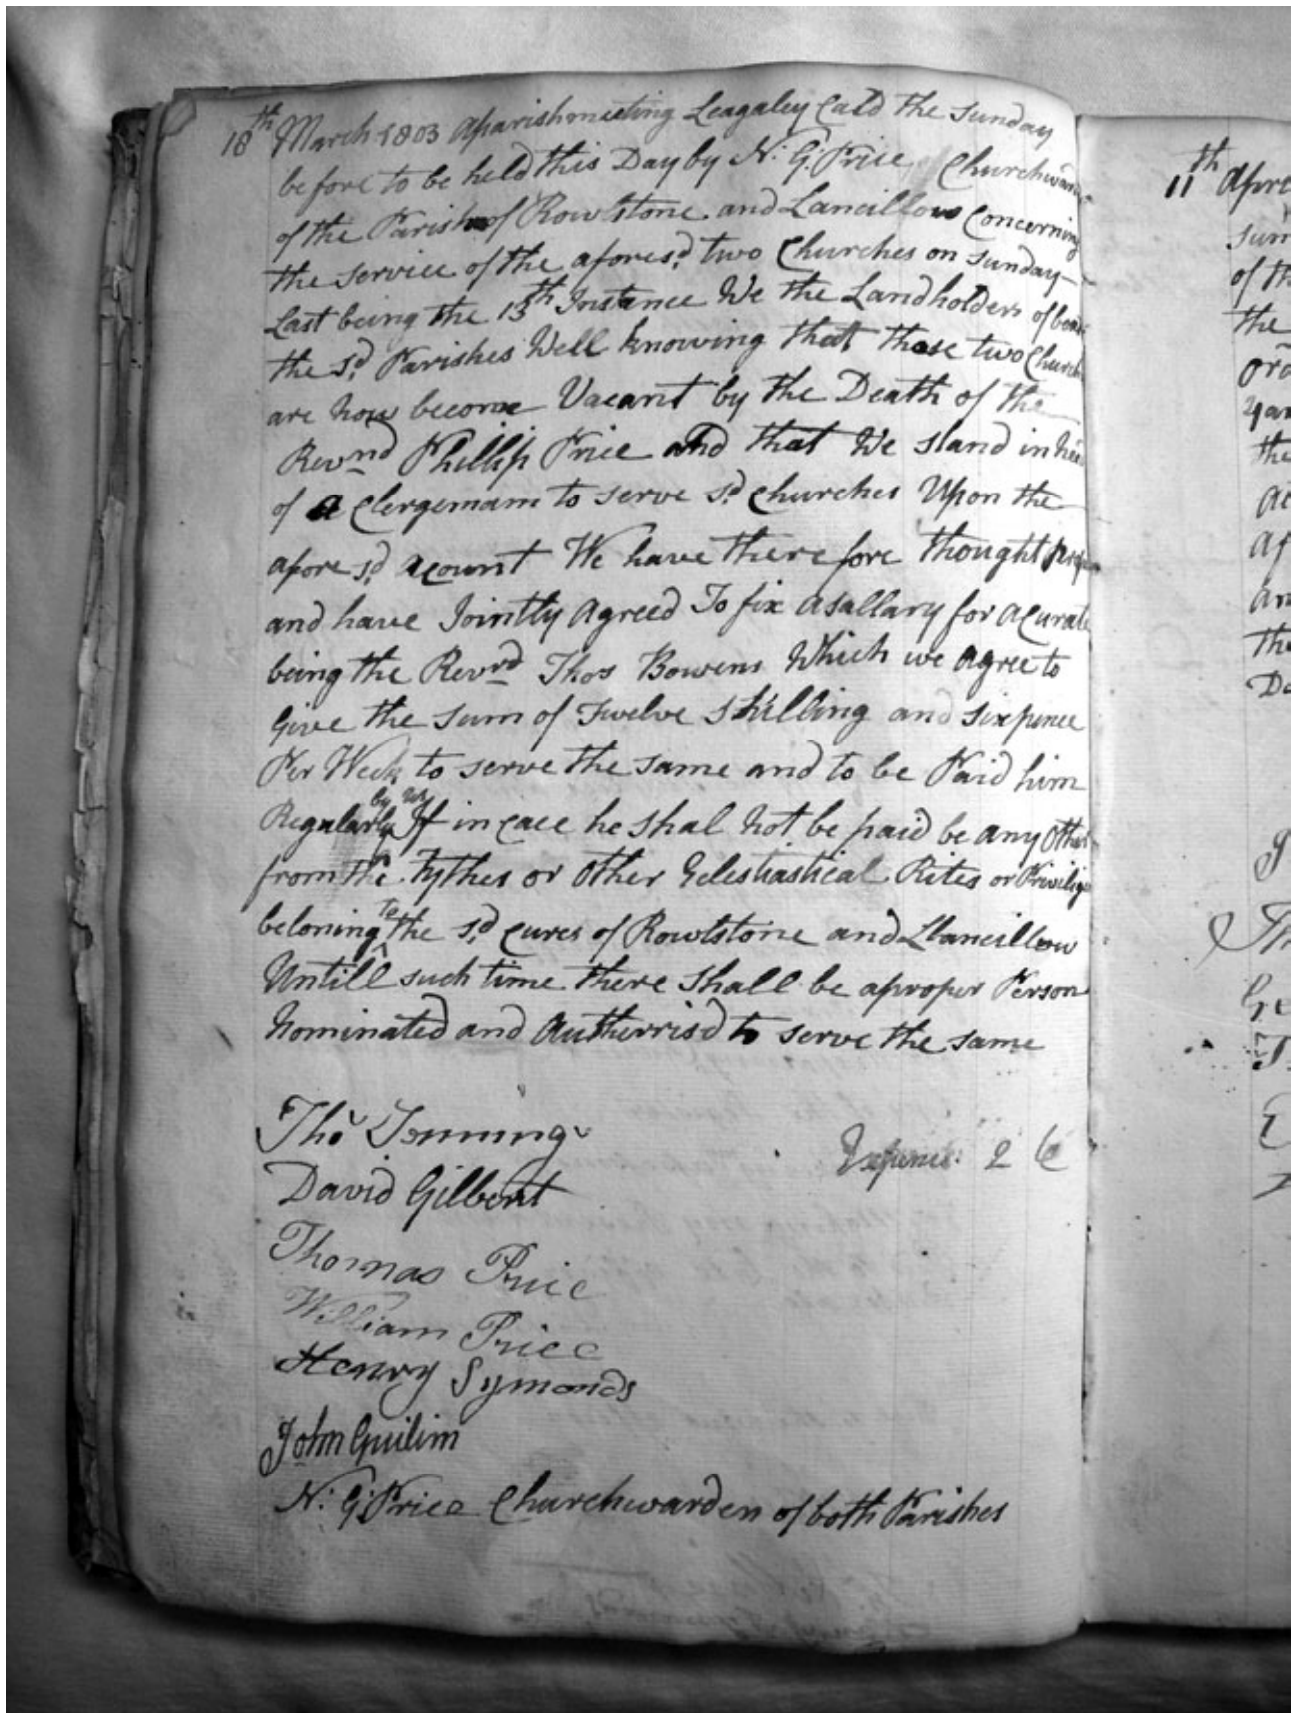 18th March 1803 Aparishmeeting Leagaley Cald the Sunday
before to be held this Day by N: G: Price Churchwarden
of the Parish of Rowlstone and Lancillow Concerning
the service of the aforesd two Churches on Sunday
Last being the 13th Instance We the Landholders of
the sd Parishes Well knowing that those two Church
are now become Vacant by the Death of the
Revnd Phillip Price and that We stand in
of a Clergemam to serve sd Churches Upon the
afore sd acount We have therefore thought
and have Jointly Agreed To fix asallary for acurate
being the Revrd Thos Bowens Which we agree to
Give the sum of Twelve Shilling and sixpence
Per Week to serve the same and to be Paid him
Regularly by us If in case he shal not be paid be any Other
from the Tythes or other Eclestiastical Rites or Privilig
beloning to the sd cures of Rowlstone and Llancillow
Untill such time there shall be aproper Person
Nominated and Autherrisd to serve the same
Thos Jenning
Expence 2 6
David Gilbert
Thomas Price
William Price
Henry Symonds
John Guilim
N: G: Price Churchwarden of both Parishes
11th Apr
Sum
of th
the
the
Th
Ge